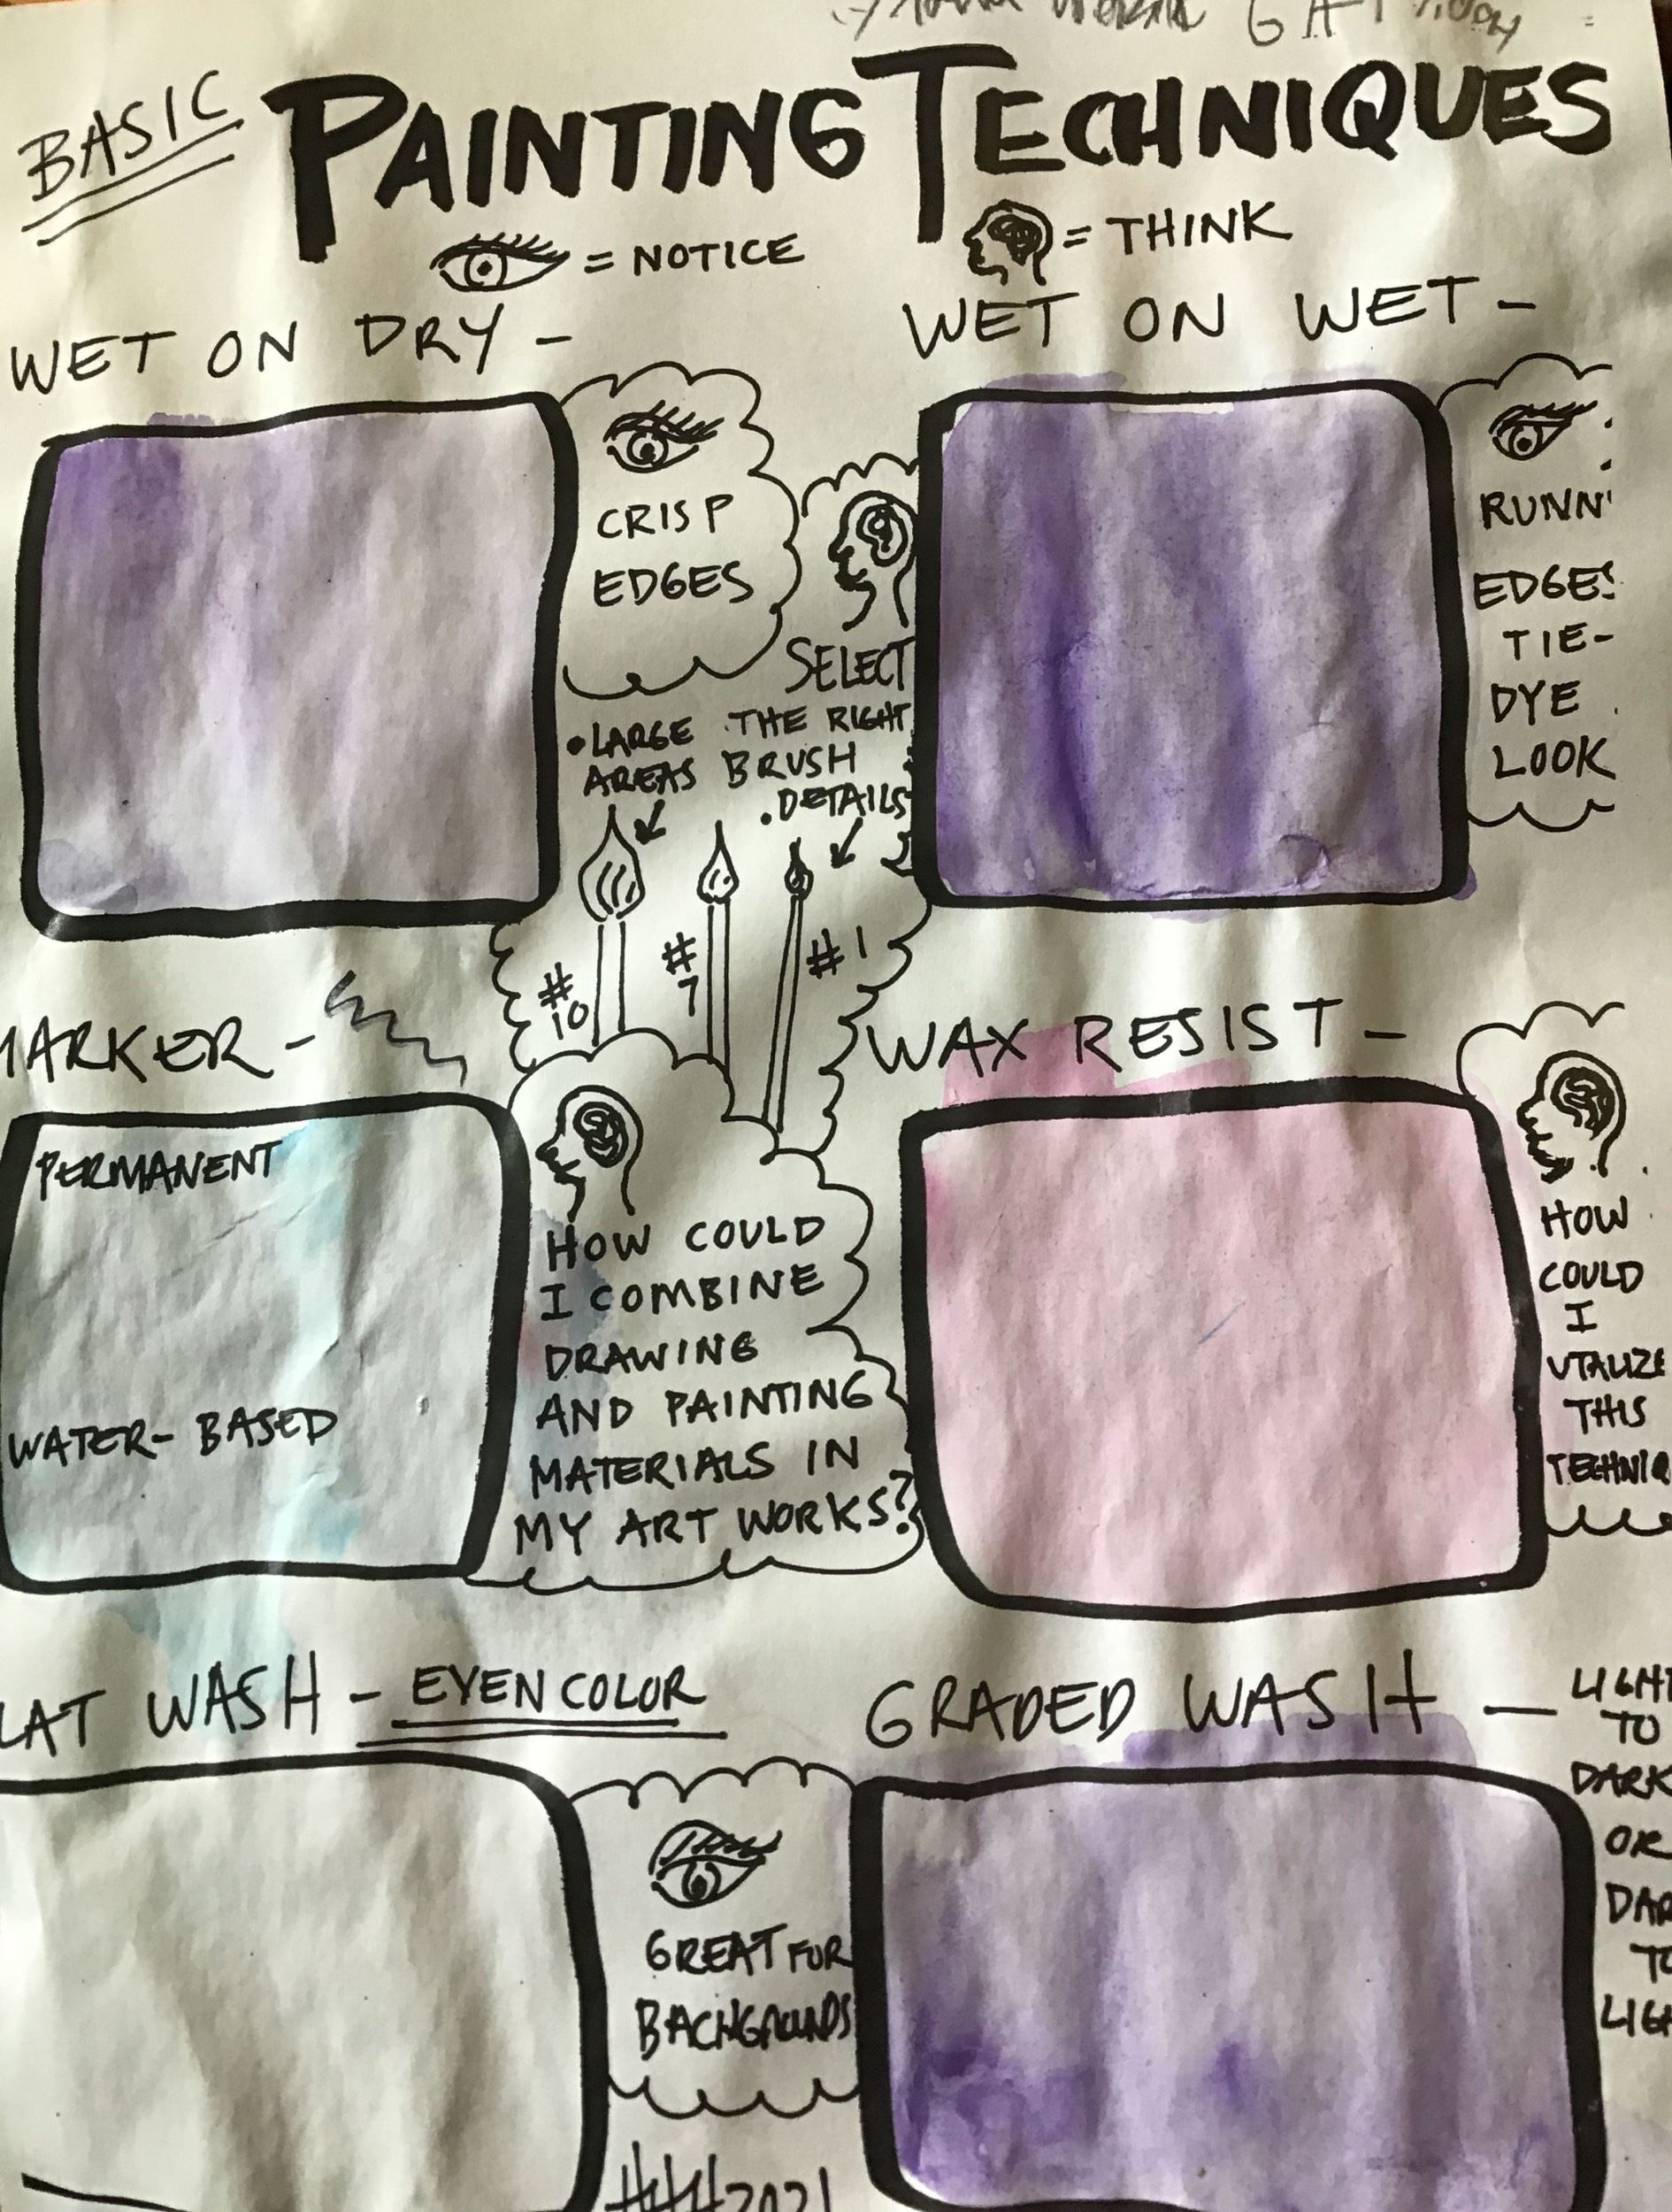 BASIC PAINTING TECHNIQUES
= NOTICE
= THINK
WET ON DRY -
WET ON WET -
CRISP
EDGES
RUNN
EDGES
TIE-
DYE
LOOK
SELECT
THE RIGHT
BRUSH
• LARGE
AREAS
. DETAILS
#10
#7
#1
MARKER -
WAX RESIST -
PERMANENT
WATER-BASED
HOW COULD
I COMBINE
DRAWING
AND PAINTING
MATERIALS IN
MY ART WORKS?
HOW
COULD
I
UTALIZE
THIS
TECHNIQ
LAT WASH - EVEN COLOR
GRADED WASH —
LIGHT
TO
DARK
OR
DAR
TO
LIGH
GREAT FOR
BACKGROUNDS
2021